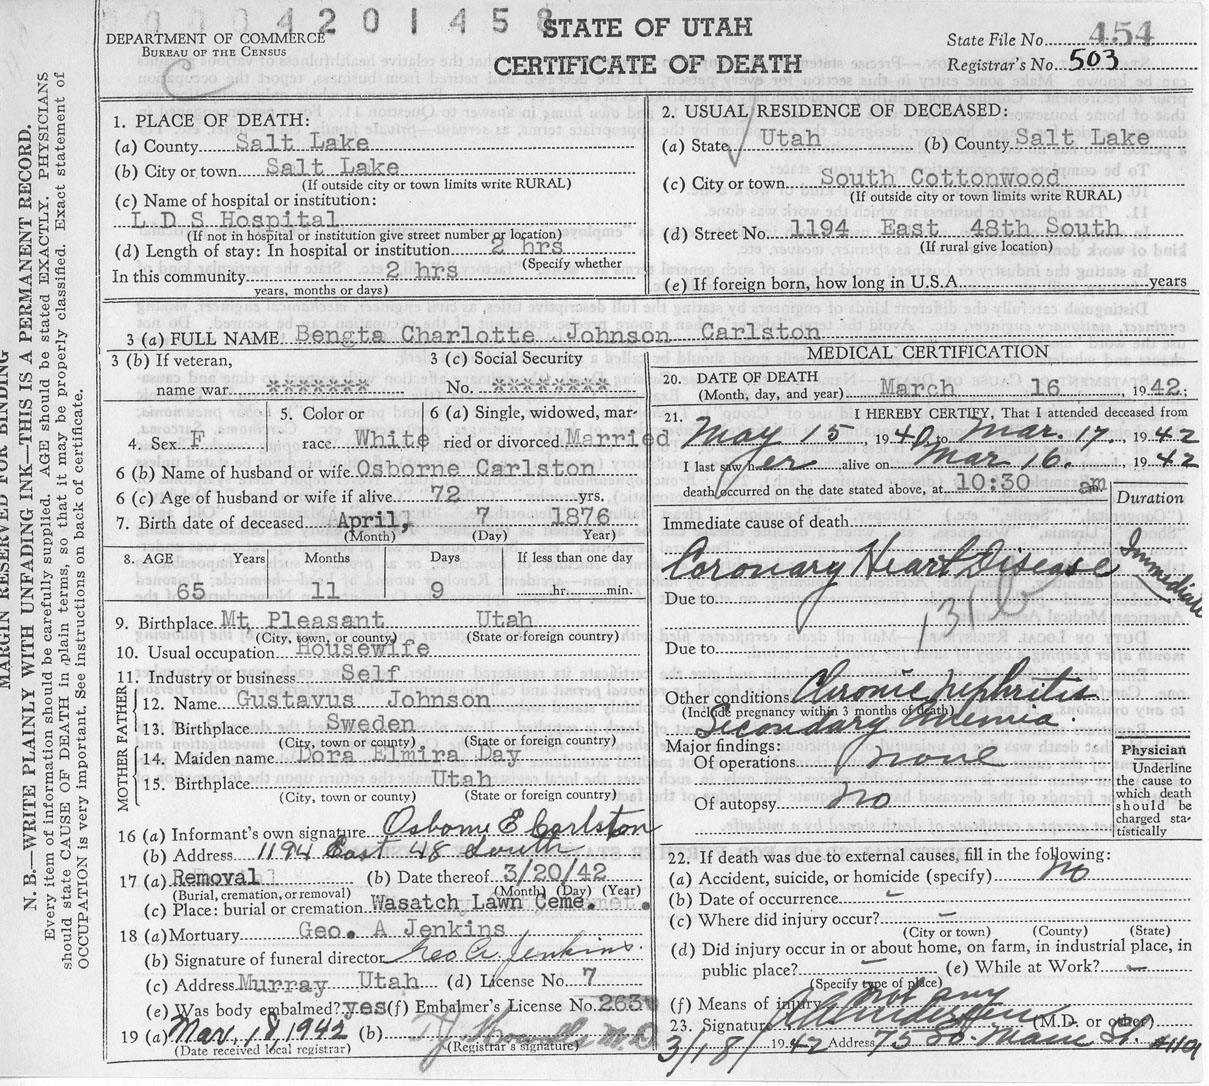 0 0 0 4 2 0 1 4 5 8
STATE OF UTAH
CERTIFICATE OF DEATH
DEPARTMENT OF COMMERCE
BUREAU OF THE CENSUS
C
State File No. 454
Registrar's No. 503
MARGIN RESERVED FOR BINDING
N. B.—WRITE PLAINLY WITH UNFADING INK—THIS IS A PERMANENT RECORD.
Every item of information should be carefully supplied. AGE should be stated EXACTLY. PHYSICIANS
should state CAUSE OF DEATH in plain terms, so that it may be properly classified. Exact statement of
OCCUPATION is very important. See instructions on back of certificate.
1. PLACE OF DEATH:
(a) County Salt Lake
(b) City or town Salt Lake
(If outside city or town limits write RURAL)
(c) Name of hospital or institution:
L D S Hospital
(If not in hospital or institution give street number or location)
(d) Length of stay: In hospital or institution 2 hrs
(Specify whether
In this community 2 hrs
years, months or days)
2. USUAL RESIDENCE OF DECEASED:
(a) State Utah (b) County Salt Lake
(c) City or town South Cottonwood
(If outside city or town limits write RURAL)
(d) Street No. 1194 East 48th South
(If rural give location)
(e) If foreign born, how long in U.S.A. years
3 (a) FULL NAME Bengta Charlotte Johnson Carlston
3 (b) If veteran,
name war ********
3 (c) Social Security
No. *********
4. Sex F
5. Color or
race White
6 (a) Single, widowed, mar-
ried or divorced Married
6 (b) Name of husband or wife Osborne Carlston
6 (c) Age of husband or wife if alive 72 yrs.
7. Birth date of deceased April, 7 1876
(Month) (Day) Year)
8. AGE Years Months Days If less than one day
65 11 9 hr. min.
9. Birthplace Mt Pleasant Utah
(City, town, or county) (State or foreign country)
10. Usual occupation Housewife
11. Industry or business Self
FATHER
12. Name Gustavus Johnson
13. Birthplace Sweden
(City, town or county) (State or foreign country)
MOTHER
14. Maiden name Dora Elmira Day
15. Birthplace Utah
(City, town or county) (State or foreign country)
16 (a) Informant's own signature Osborne E Carlston
(b) Address 1194 East 48 South
17 (a) Removal (b) Date thereof 3/20/42
(Burial, cremation, or removal) (Month) (Day) (Year)
(c) Place: burial or cremation Wasatch Lawn Ceme.
18 (a) Mortuary Geo. A Jenkins
(b) Signature of funeral director Geo A. Jenkins.
(c) Address Murray Utah (d) License No. 7
(e) Was body embalmed? yes (f) Embalmer's License No. 263
19 (a) Mar. 18, 1942 (b) M.D.
(Date received local registrar) (Registrar's signature)
MEDICAL CERTIFICATION
20. DATE OF DEATH
(Month, day, and year) March 16 1942;
21. I HEREBY CERTIFY, That I attended deceased from
May 15, 1940 to Mar. 17, 1942
I last saw her alive on Mar 16. 1942
death occurred on the date stated above, at 10:30 am
Duration
Immediate cause of death
Coronary Heart Disease Immediate
Due to
Due to
Other conditions Chronic Nephritis
(Include pregnancy within 3 months of death)
Secondary Anemia.
Major findings:
Of operations None
Of autopsy No
Physician
Underline
the cause to
which death
should be
charged sta-
tistically
22. If death was due to external causes, fill in the following:
(a) Accident, suicide, or homicide (specify) No
(b) Date of occurrence –
(c) Where did injury occur? –
(City or town) (County) (State)
(d) Did injury occur in or about home, on farm, in industrial place, in
public place? – (e) While at Work? –
(Specify type of place)
(f) Means of injury not any
23. Signature (M.D. or other)
3/18/1942 Address 75 So. Main St.